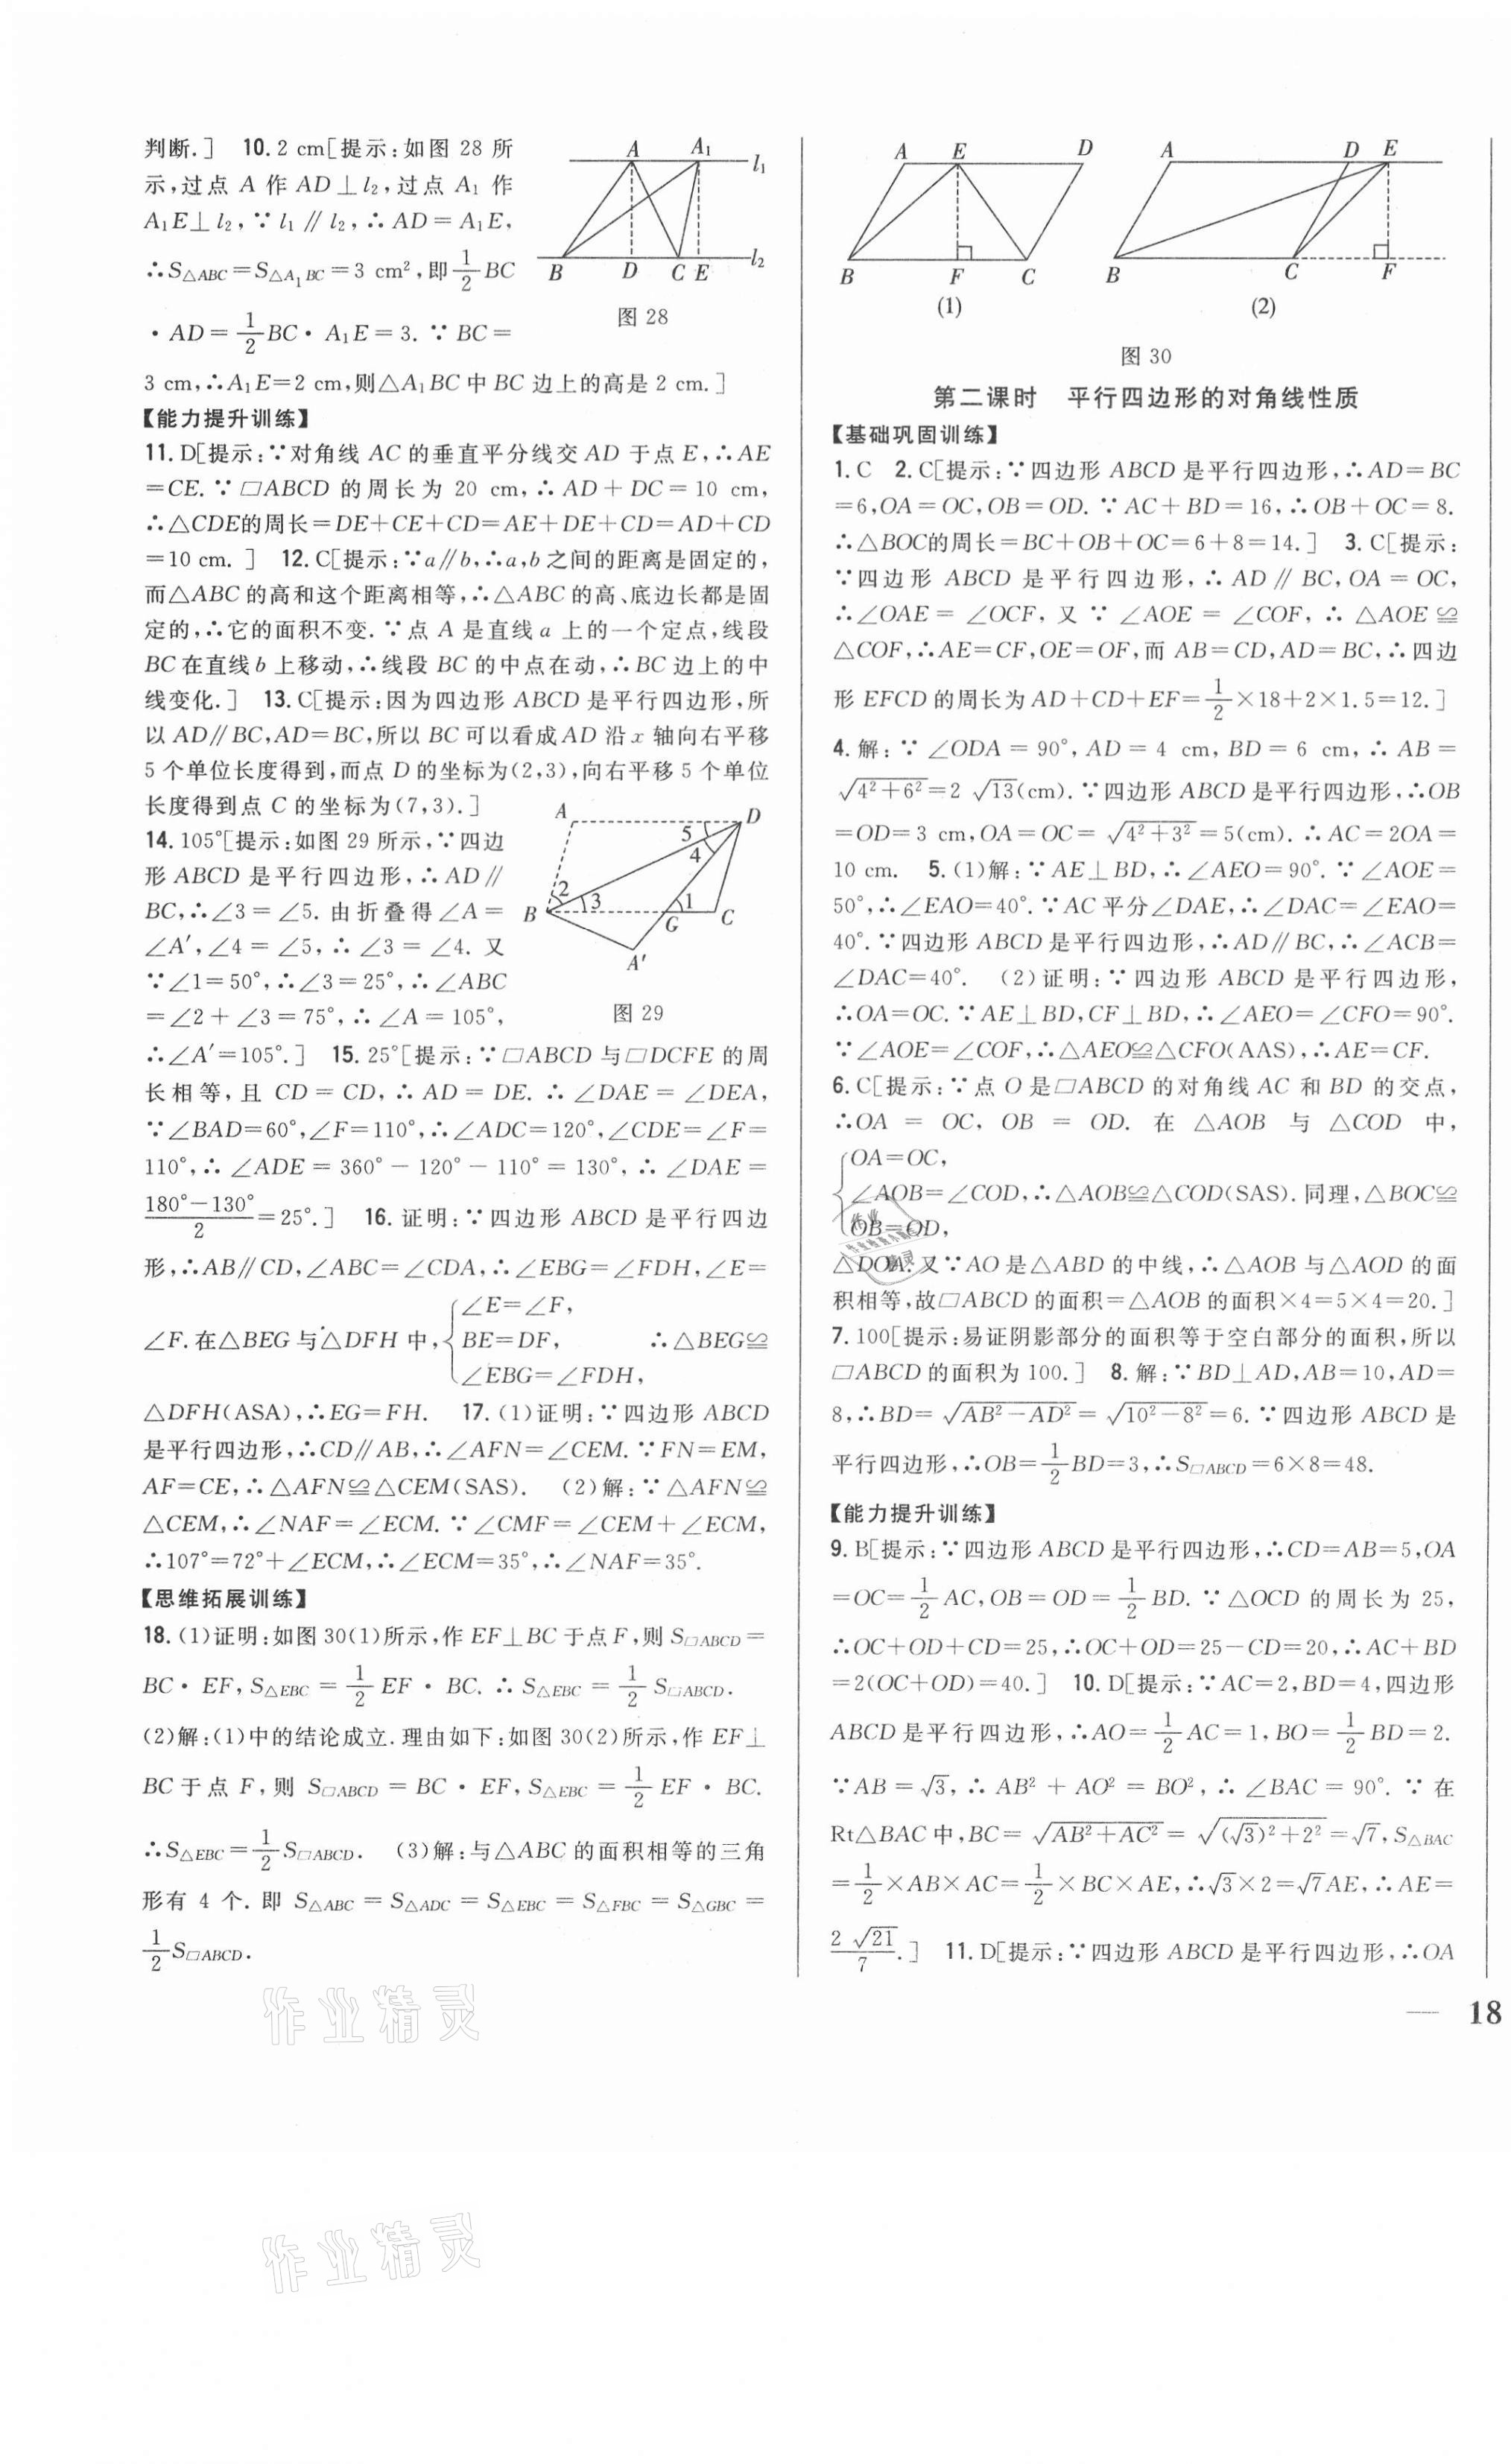 判断.] 10. 2 cm[提示:如图 28 所
示,过点 A 作 AD⊥l₂,过点 A₁ 作
A₁E⊥l₂,∵l₁∥l₂,∴AD=A₁E,
∴S△ABC=S△A₁BC=3 cm²,即1/2BC
·AD=1/2BC·A₁E=3.∵BC=
3 cm,∴A₁E=2 cm,则△A₁BC中BC边上的高是2 cm.]
A A₁ l₁
B D C E l₂
图 28
【能力提升训练】
11. D[提示:∵对角线 AC 的垂直平分线交 AD 于点 E,∴AE
=CE.∵▱ABCD 的周长为 20 cm,∴AD+DC=10 cm,
∴△CDE的周长=DE+CE+CD=AE+DE+CD=AD+CD
=10 cm.] 12. C[提示:∵a∥b,∴a,b之间的距离是固定的,
而△ABC的高和这个距离相等,∴△ABC的高、底边长都是固
定的,∴它的面积不变.∵点 A 是直线a 上的一个定点,线段
BC在直线b上移动,∴线段 BC 的中点在动,∴BC边上的中
线变化.] 13. C[提示:因为四边形 ABCD 是平行四边形,所
以AD∥BC,AD=BC,所以BC可以看成AD沿x轴向右平移
5个单位长度得到,而点 D 的坐标为(2,3),向右平移5个单位
长度得到点 C 的坐标为(7,3).]
14. 105°[提示:如图 29 所示,∵四边
形 ABCD 是平行四边形,∴AD∥
BC,∴∠3=∠5.由折叠得∠A=
∠A′,∠4=∠5,∴∠3=∠4.又
∵∠1=50°,∴∠3=25°,∴∠ABC
=∠2+∠3=75°,∴∠A=105°,
A D 5 4 2 3 1 B G C A′
图 29
∴∠A′=105°.] 15. 25°[提示:∵▱ABCD与▱DCFE的周
长相等,且 CD=CD,∴AD=DE.∴∠DAE=∠DEA,
∵∠BAD=60°,∠F=110°,∴∠ADC=120°,∠CDE=∠F=
110°,∴∠ADE=360°-120°-110°=130°,∴∠DAE=
(180°-130°)/2=25°.] 16. 证明:∵四边形 ABCD 是平行四边
形,∴AB∥CD,∠ABC=∠CDA,∴∠EBG=∠FDH,∠E=
∠E=∠F,
∠F.在△BEG与△DFH中,{BE=DF, ∴△BEG≌
∠EBG=∠FDH,
△DFH(ASA),∴EG=FH. 17. (1)证明:∵四边形 ABCD
是平行四边形,∴CD∥AB,∴∠AFN=∠CEM.∵FN=EM,
AF=CE,∴△AFN≌△CEM(SAS). (2)解:∵△AFN≌
△CEM,∴∠NAF=∠ECM.∵∠CMF=∠CEM+∠ECM,
∴107°=72°+∠ECM,∴∠ECM=35°,∴∠NAF=35°.
【思维拓展训练】
18. (1)证明:如图30(1)所示,作EF⊥BC于点F,则S▱ABCD=
BC·EF,S△EBC=1/2EF·BC.∴S△EBC=1/2S▱ABCD.
(2)解:(1)中的结论成立.理由如下:如图30(2)所示,作EF⊥
BC于点 F,则 S▱ABCD=BC·EF,S△EBC=1/2EF·BC.
∴S△EBC=1/2S▱ABCD. (3)解:与△ABC 的面积相等的三角
形有 4 个.即 S△ABC=S△ADC=S△EBC=S△FBC=S△GBC=
1/2S▱ABCD.
A E D
B F C
(1)
A D E
B C F
(2)
图 30
第二课时 平行四边形的对角线性质
【基础巩固训练】
1. C 2. C[提示:∵四边形 ABCD 是平行四边形,∴AD=BC
=6,OA=OC,OB=OD.∵AC+BD=16,∴OB+OC=8.
∴△BOC的周长=BC+OB+OC=6+8=14.] 3. C[提示:
∵四边形 ABCD 是平行四边形,∴AD∥BC,OA=OC,
∴∠OAE=∠OCF,又∵∠AOE=∠COF,∴△AOE≌
△COF,∴AE=CF,OE=OF,而 AB=CD,AD=BC,∴四边
形 EFCD 的周长为AD+CD+EF=1/2×18+2×1.5=12.]
4. 解:∵∠ODA=90°,AD=4 cm,BD=6 cm,∴AB=
√(4²+6²)=2√13(cm).∵四边形 ABCD是平行四边形,∴OB
=OD=3 cm,OA=OC=√(4²+3²)=5(cm).∴AC=2OA=
10 cm. 5. (1)解:∵AE⊥BD,∴∠AEO=90°.∵∠AOE=
50°,∴∠EAO=40°.∵AC平分∠DAE,∴∠DAC=∠EAO=
40°.∵四边形 ABCD是平行四边形,∴AD∥BC,∴∠ACB=
∠DAC=40°. (2)证明:∵四边形 ABCD 是平行四边形,
∴OA=OC.∵AE⊥BD,CF⊥BD,∴∠AEO=∠CFO=90°.
∵∠AOE=∠COF,∴△AEO≌△CFO(AAS),∴AE=CF.
6. C[提示:∵点 O 是▱ABCD 的对角线 AC 和 BD 的交点,
∴OA=OC,OB=OD.在△AOB与△COD中,
OA=OC,
{∠AOB=∠COD,∴△AOB≌△COD(SAS).同理,△BOC≌
OB=OD,
△DOA.又∵AO是△ABD 的中线,∴△AOB与△AOD的面
积相等,故▱ABCD的面积=△AOB的面积×4=5×4=20.]
7. 100[提示:易证阴影部分的面积等于空白部分的面积,所以
▱ABCD的面积为100.] 8. 解:∵BD⊥AD,AB=10,AD=
8,∴BD=√(AB²-AD²)=√(10²-8²)=6.∵四边形 ABCD 是
平行四边形,∴OB=1/2BD=3,∴S▱ABCD=6×8=48.
【能力提升训练】
9. B[提示:∵四边形ABCD是平行四边形,∴CD=AB=5,OA
=OC=1/2AC,OB=OD=1/2BD.∵△OCD 的周长为 25,
∴OC+OD+CD=25,∴OC+OD=25-CD=20,∴AC+BD
=2(OC+OD)=40.] 10. D[提示:∵AC=2,BD=4,四边形
ABCD是平行四边形,∴AO=1/2AC=1,BO=1/2BD=2.
∵AB=√3,∴AB²+AO²=BO²,∴∠BAC=90°.∵在
Rt△BAC中,BC=√(AB²+AC²)=√((√3)²+2²)=√7,S△BAC
=1/2×AB×AC=1/2×BC×AE,∴√3×2=√7AE,∴AE=
2√21/7.] 11. D[提示:∵四边形 ABCD是平行四边形,∴OA
— 18
作业精灵
作业精灵